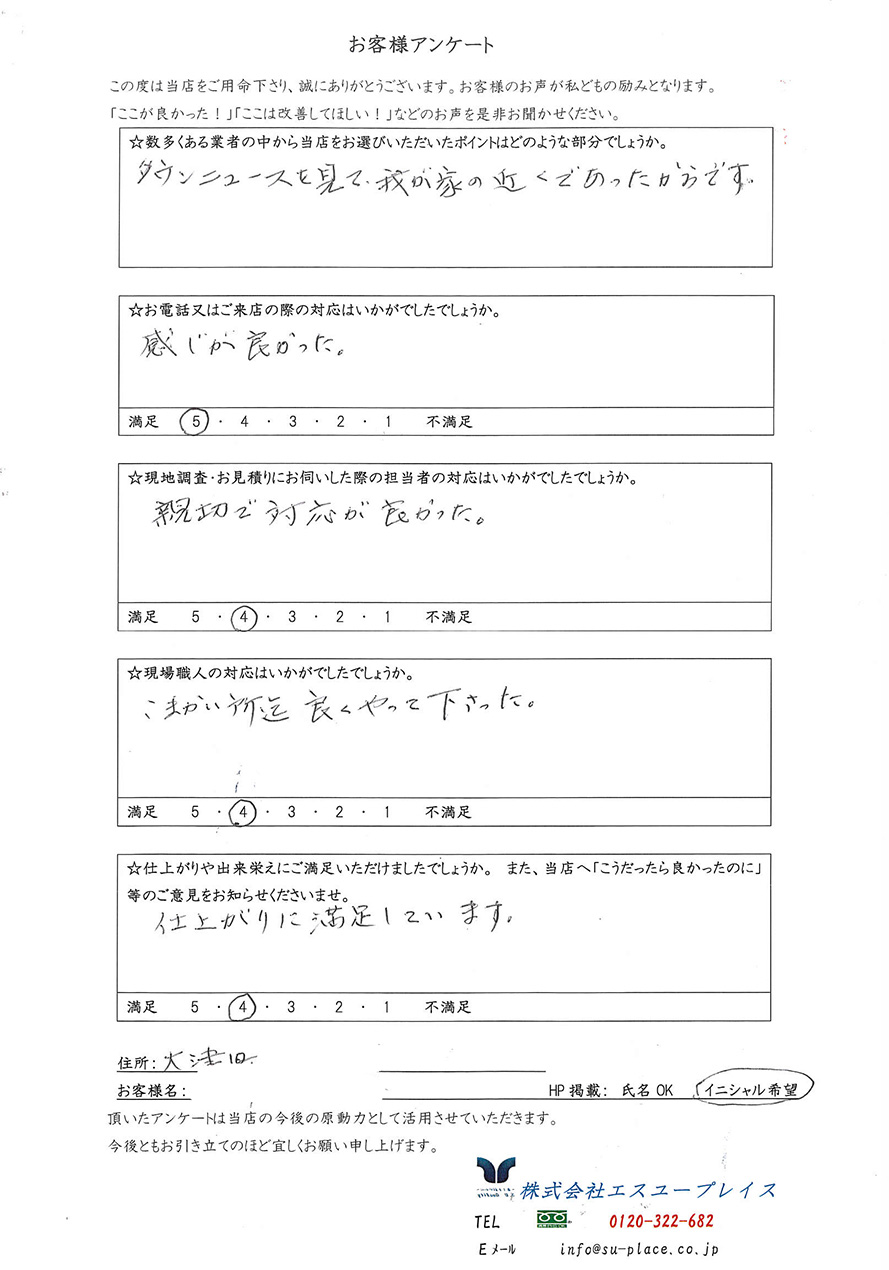 お客様アンケート
この度は当店をご用命下さり、誠にありがとうございます。お客様のお声が私どもの励みとなります。
「ここが良かった！」「ここは改善してほしい！」などのお声を是非お聞かせください。
☆数多くある業者の中から当店をお選びいただいたポイントはどのような部分でしょうか。
タウンニュースを見て、我が家の近くであったからです。
☆お電話又はご来店の際の対応はいかがでしたでしょうか。
感じが良かった。
満足 5 ・ 4 ・ 3 ・ 2 ・ 1 不満足
☆現地調査・お見積りにお伺いした際の担当者の対応はいかがでしたでしょうか。
親切で対応が良かった。
満足 5 ・ 4 ・ 3 ・ 2 ・ 1 不満足
☆現場職人の対応はいかがでしたでしょうか。
こまかい所迄良くやって下さった。
満足 5 ・ 4 ・ 3 ・ 2 ・ 1 不満足
☆仕上がりや出来栄えにご満足いただけましたでしょうか。 また、当店へ「こうだったら良かったのに」
等のご意見をお知らせくださいませ。
仕上がりに満足しています。
満足 5 ・ 4 ・ 3 ・ 2 ・ 1 不満足
住所：大津
お客様名： HP掲載： 氏名OK イニシャル希望
頂いたアンケートは当店の今後の原動力として活用させていただきます。
今後ともお引き立てのほど宜しくお願い申し上げます。
株式会社エスユープレイス
TEL 0120-322-682
Eメール info@su-place.co.jp